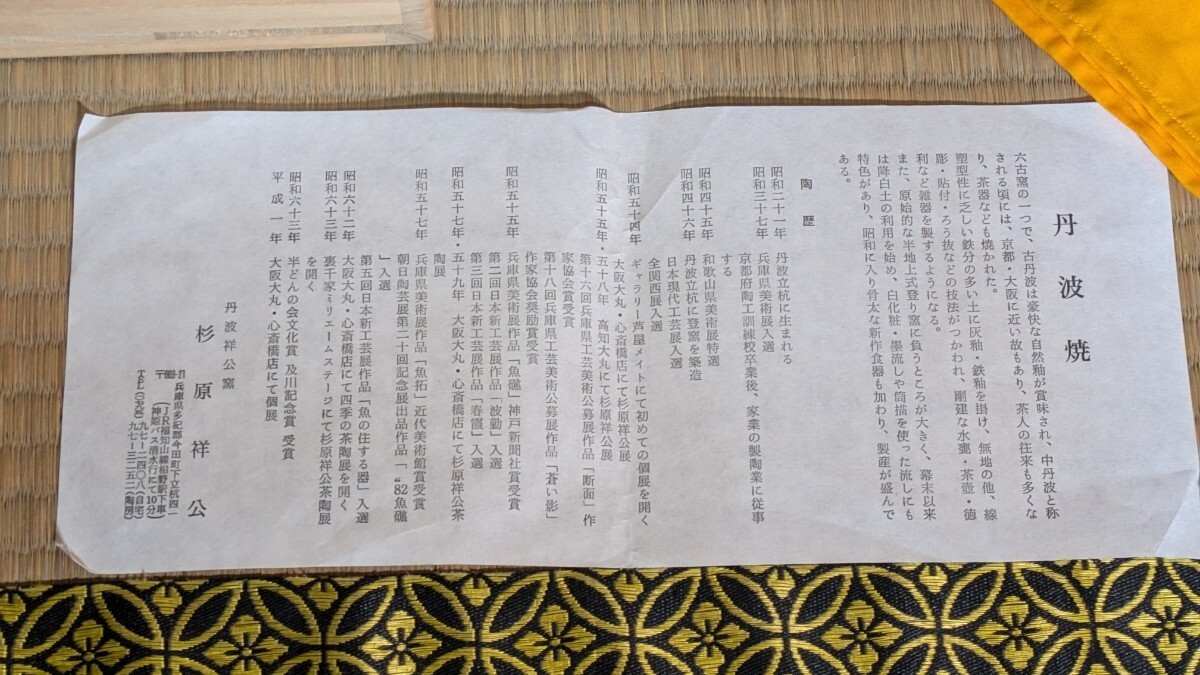 丹波焼
六古窯の一つで、古丹波は豪快な自然釉が賞味され、中丹波と称
される頃には、京都・大阪に近い故もあり、茶人の往来も多くな
り、茶器なども焼かれた。
塑型性に乏しい鉄分の多い土に灰釉・鉄釉を掛け、無地の他、線
彫・貼付・ろう抜などの技法がつかわれ、剛建な水甕・茶壺・徳
利など雑器を製するようになる。
また、原始的な半地上式登り窯に負うところが大きく、幕末以来
は降白土の利用を始め、白化粧・墨流しや筒描を使った流しにも
特色があり、昭和に入り骨太な新作食器も加わり、製産が盛んで
ある。
陶歴
昭和二十一年 丹波立杭に生まれる
兵庫県美術展入選
昭和三十七年 京都府陶工訓練校卒業後、家業の製陶業に従事
する
昭和四十五年 和歌山県美術展特選
昭和四十六年 丹波立杭に登窯を築造
日本現代工芸展入選
全関西展入選
昭和五十四年 ギャラリー芦屋メイトにて初めての個展を開く
大阪大丸・心斎橋店にて杉原祥公展
昭和五十五年・五十八年 高知大丸にて杉原祥公展
第十六回兵庫県工芸美術公募展作品「断面」作
家協会賞受賞
第十八回兵庫県工芸美術公募展作品「蒼い影」
作家協会奨励賞受賞
昭和五十五年 兵庫県美術展作品「魚礁」神戸新聞社賞受賞
第二回日本新工芸展作品「波動」入選
第三回日本新工芸展作品「春靄」入選
昭和五十七年・五十九年 大阪大丸・心斎橋店にて杉原祥公茶
陶展
昭和五十七年 兵庫県美術展作品「魚拓」近代美術館賞受賞
朝日陶芸展第二十回記念展出品作品「〝82魚礁
」入選
第五回日本新工芸展作品「魚の住する器」入選
昭和六十二年 大阪大丸・心斎橋店にて四季の茶陶展を開く
昭和六十三年 裏千家〝リエームステージにて杉原祥公茶陶展
を開く
昭和六十三年 半どんの会文化賞 及川記念賞 受賞
平成一年 大阪大丸・心斎橋店にて個展
丹波祥公窯
杉原祥公
兵庫県多紀郡今田町下立杭四一
(JR福知山線相野駅下車
神姫バス清水行にて10分)
TEL(〇七九五)九七ー二四〇八(自宅)
九七ー三二五二(陶房)